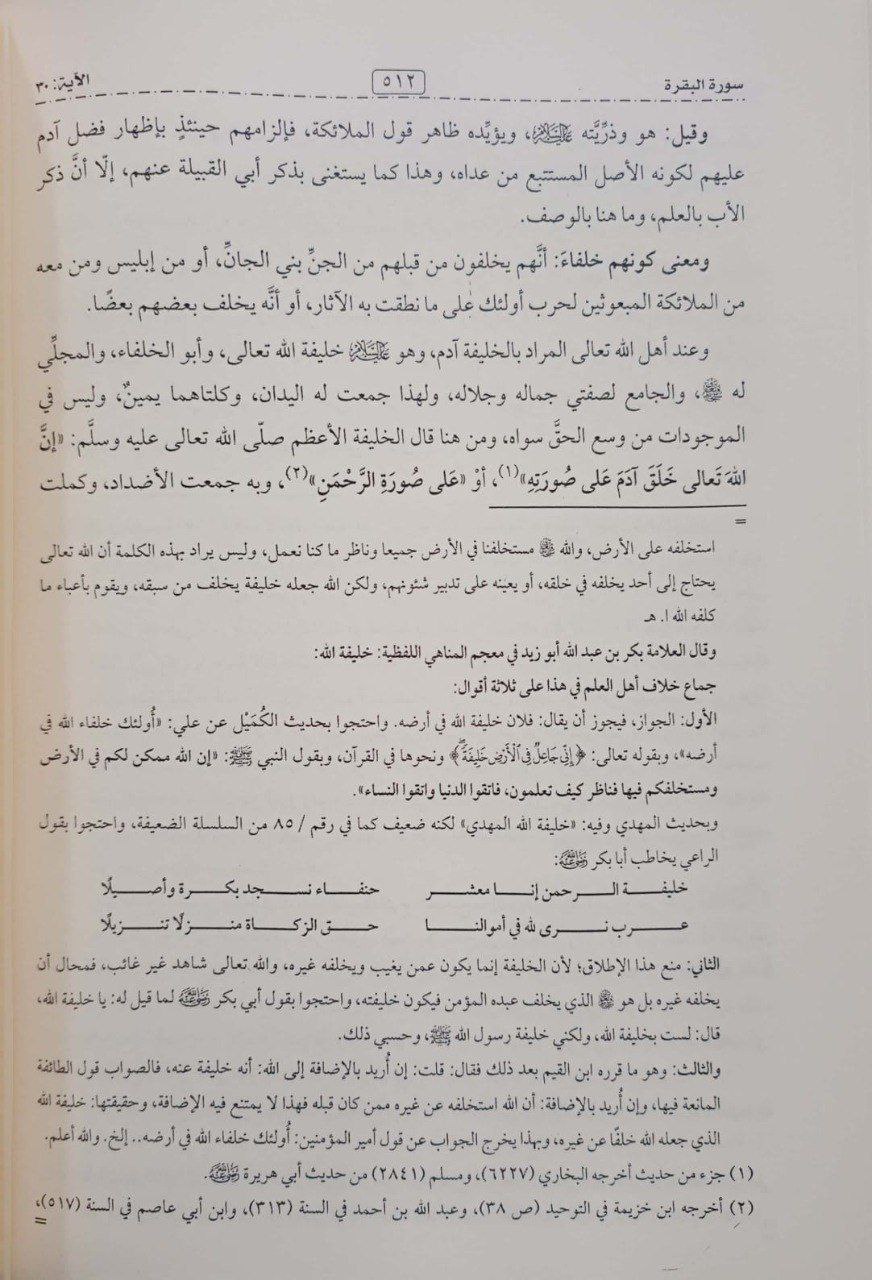 سورة البقرة ٥١٢ الآية: ٣٠
وقيل: هو وذرِّيَّته عليه السلام، ويؤيِّده ظاهر قول الملائكة، فإلزامهم حينئذٍ بإظهار فضل آدم
عليهم لكونه الأصل المستتبع من عداه، وهذا كما يستغنى بذكر أبي القبيلة عنهم، إلّا أنَّ ذكر
الأب بالعلم، وما هنا بالوصف.
ومعنى كونهم خلفاءَ: أنَّهم يخلفون من قبلهم من الجنِّ بني الجانِّ، أو من إبليس ومن معه
من الملائكة المبعوثين لحرب أولئك على ما نطقت به الآثار، أو أنَّه يخلف بعضهم بعضًا.
وعند أهل الله تعالى المراد بالخليفة آدم، وهو عليه السلام خليفة الله تعالى، وأبو الخلفاء، والمجلِّي
له ﷻ، والجامع لصفتي جماله وجلاله، ولهذا جمعت له اليدان، وكلتاهما يمينٌ، وليس في
الموجودات من وسع الحقَّ سواه، ومن هنا قال الخليفة الأعظم صلّى الله تعالى عليه وسلَّم: «إنَّ
اللهَ تَعالى خَلَقَ آدَمَ عَلى صُورَتِهِ»(١)، أوْ «عَلى صُورَةِ الرَّحْمَنِ»(٢)، وبه جمعت الأضداد، وكملت
=
استخلفه على الأرض، والله ﷻ مستخلفنا في الأرض جميعا وناظر ما كنا نعمل، وليس يراد بهذه الكلمة أن الله تعالى
يحتاج إلى أحد يخلفه في خلقه، أو يعينه على تدبير شئونهم، ولكن الله جعله خليفة يخلف من سبقه، ويقوم بأعباء ما
كلفه الله ا. هـ
وقال العلامة بكر بن عبد الله أبو زيد في معجم المناهي اللفظية: خليفة الله:
جماع خلاف أهل العلم في هذا على ثلاثة أقوال:
الأول: الجواز، فيجوز أن يقال: فلان خليفة الله في أرضه. واحتجوا بحديث الكُمَيْل عن علي: «أُولئك خلفاء الله في
أرضه»، وبقوله تعالى: ﴿إِنِّي جَاعِلٌ فِي ٱلْأَرْضِ خَلِيفَةً﴾ ونحوها في القرآن، وبقول النبي ﷺ: «إن الله ممكن لكم في الأرض
ومستخلفكم فيها فناظر كيف تعلمون، فاتقوا الدنيا واتقوا النساء».
وبحديث المهدي وفيه: «خليفة الله المهدي» لكنه ضعيف كما في رقم / ٨٥ من السلسلة الضعيفة، واحتجوا بقول
الراعي يخاطب أبا بكر رضي الله عنه:
خليفة الرحمن إنا معشر حنفاء نسجد بكرة وأصيلًا
عرب نرى لله في أموالنا حق الزكاة منزلًا تنزيلًا
الثاني: منع هذا الإطلاق؛ لأن الخليفة إنما يكون عمن يغيب ويخلفه غيره، والله تعالى شاهد غير غائب، فمحال أن
يخلفه غيره بل هو ﷻ الذي يخلف عبده المؤمن فيكون خليفته، واحتجوا بقول أبي بكر رضي الله عنه لما قيل له: يا خليفة الله،
قال: لست بخليفة الله، ولكني خليفة رسول الله ﷺ، وحسبي ذلك.
والثالث: وهو ما قرره ابن القيم بعد ذلك فقال: قلت: إن أُريد بالإضافة إلى الله: أنه خليفة عنه، فالصواب قول الطائفة
المانعة فيها، وإن أُريد بالإضافة: أن الله استخلفه عن غيره ممن كان قبله فهذا لا يمتنع فيه الإضافة، وحقيقتها: خليفة الله
الذي جعله الله خلفًا عن غيره، وبهذا يخرج الجواب عن قول أمير المؤمنين: أُولئك خلفاء الله في أرضه.. إلخ. والله أعلم.
(١) جزء من حديث أخرجه البخاري (٦٢٢٧)، ومسلم (٢٨٤١) من حديث أبي هريرة رضي الله عنه.
(٢) أخرجه ابن خزيمة في التوحيد (ص ٣٨)، وعبد الله بن أحمد في السنة (٣١٣)، وابن أبي عاصم في السنة (٥١٧)، =